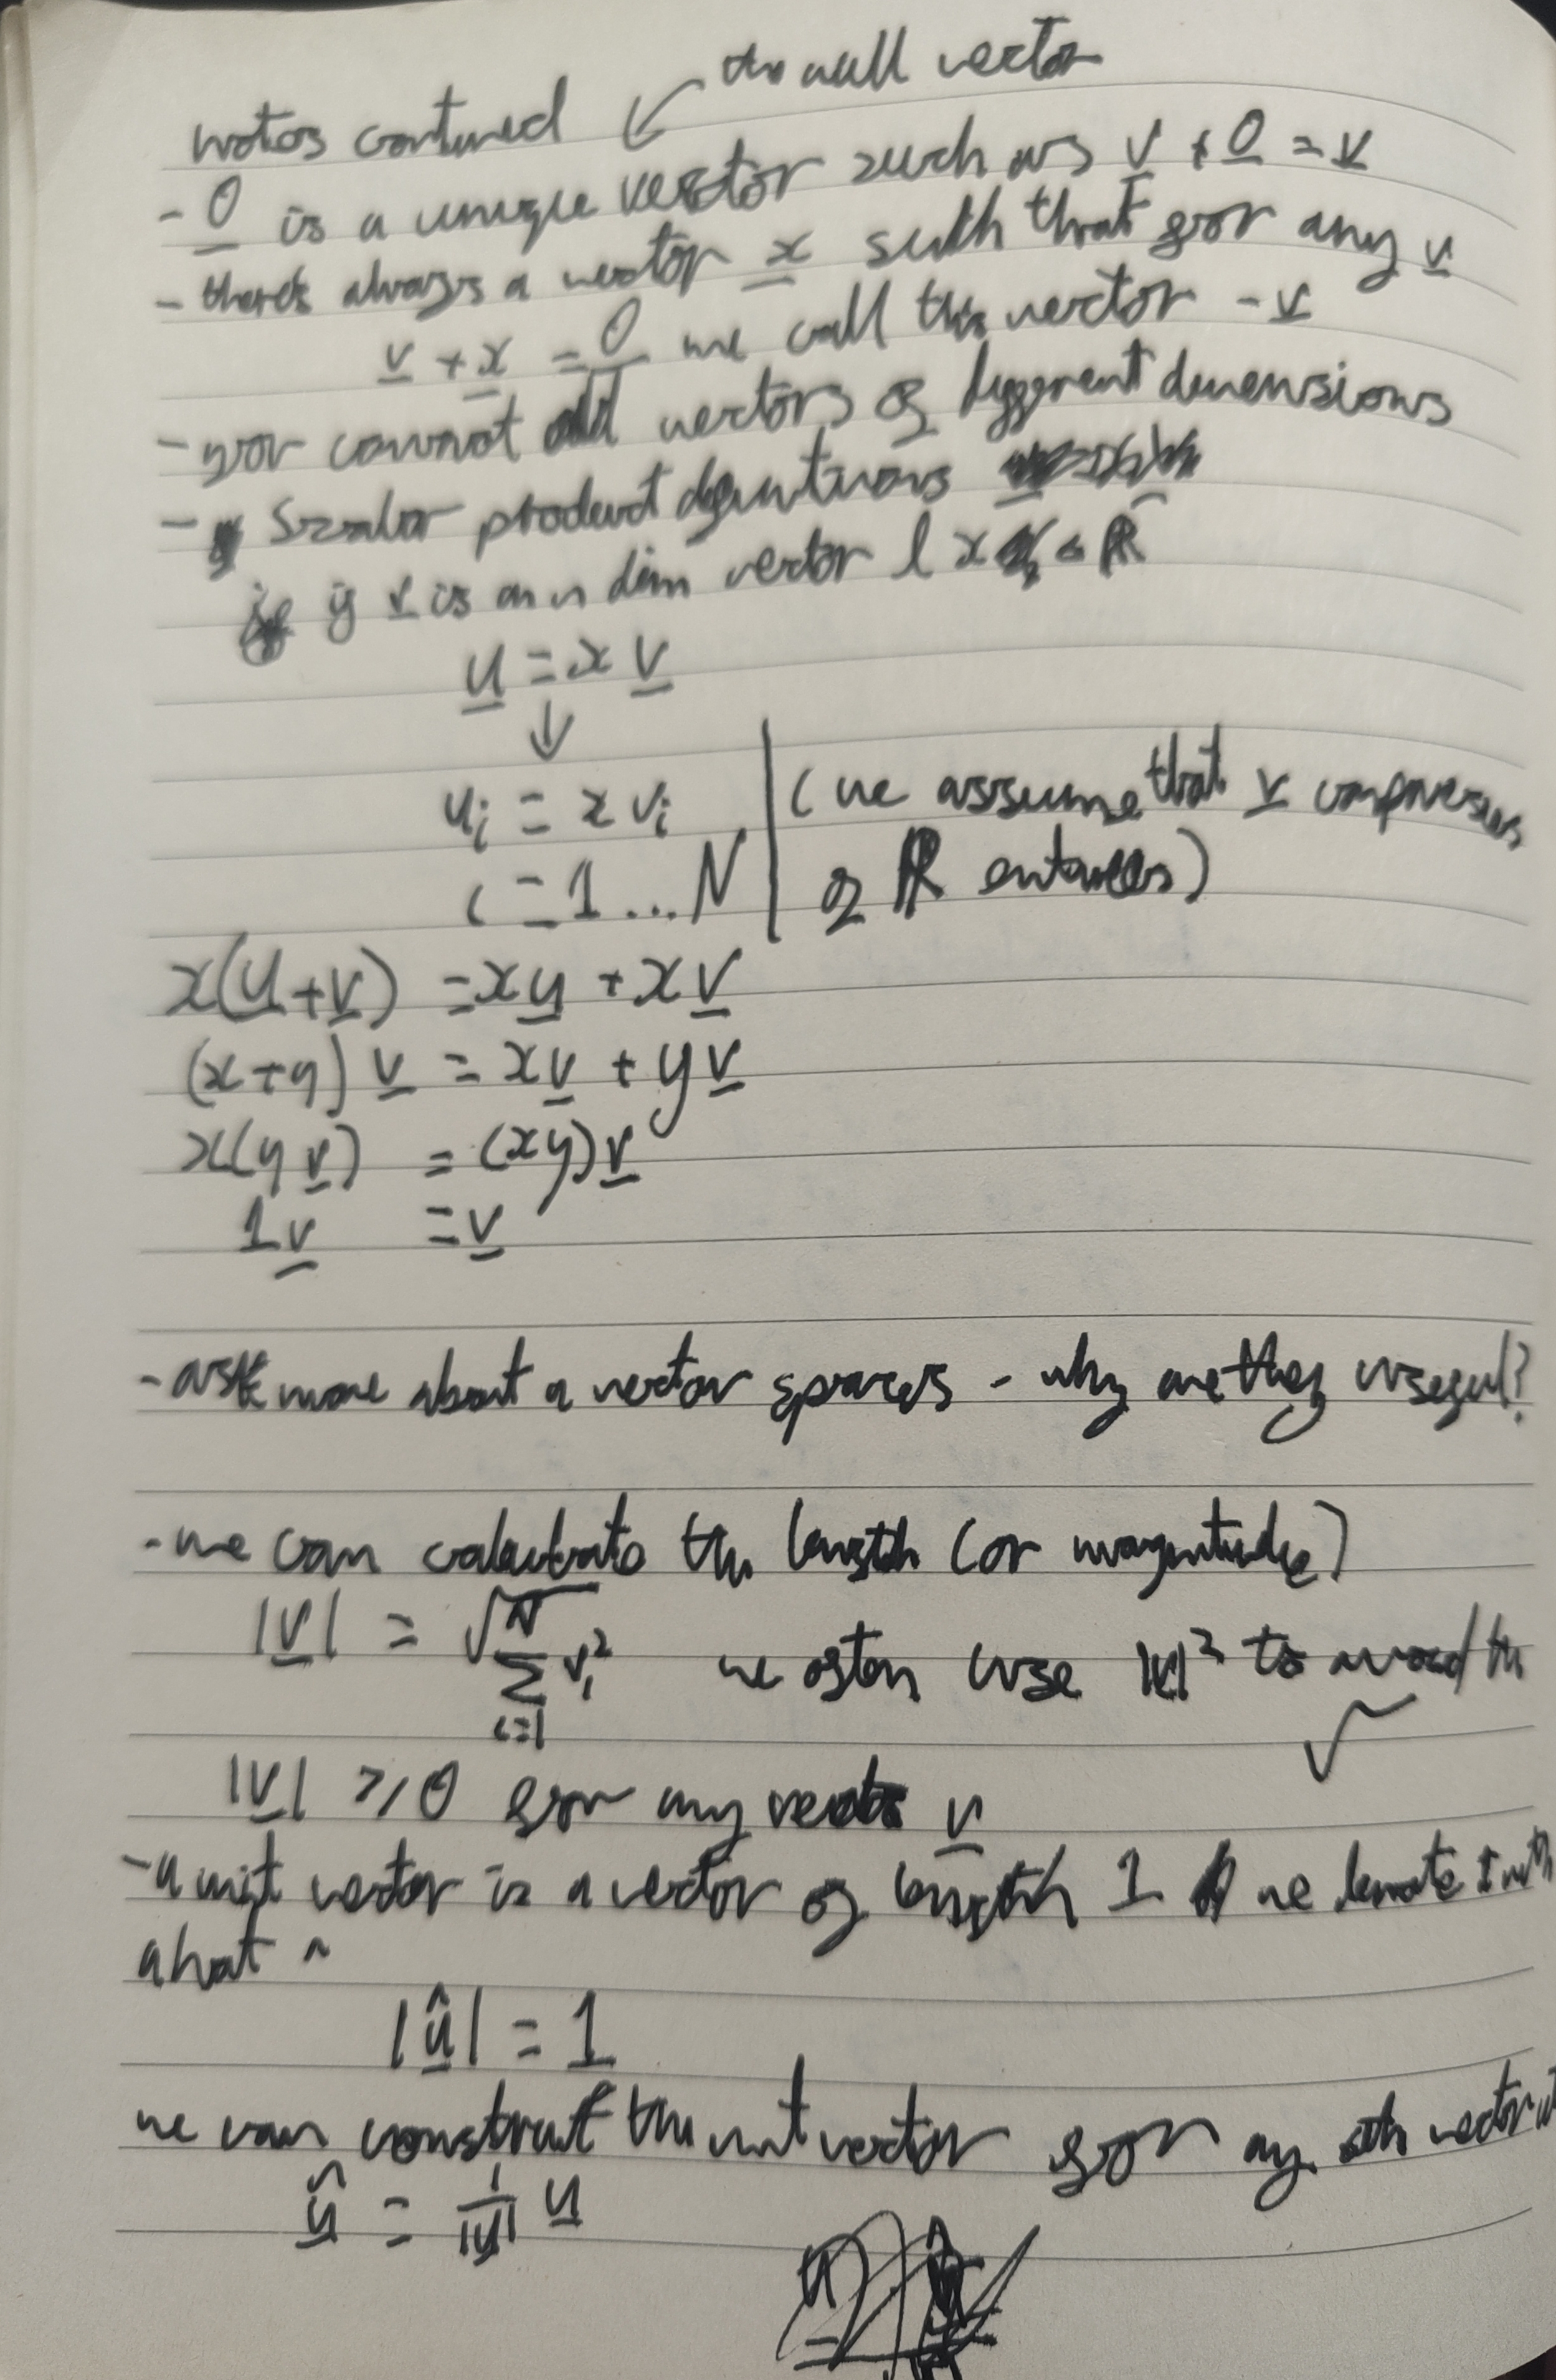 the null vector
notes contured ↙
- 0 is a unique vector such as v + 0 = v
- there's always a vector x such that for any v
v + x = 0 we call this vector - v
- you cannot add vectors of different dimensions
- Scalar product definitions
if v is an n dim vector & x ∈ ℝ
u = x v
↓
ui = x vi | (we assume that v comprises
i = 1 ... N | of ℝ entries)
x(u+v) = xu + xv
(x+y) v = xv + yv
x(y v) = (xy)v
1v = v
- ask more about a vector spaces - why are they useful?
- we can calculate the length (or magnitude)
|v| = √ N ∑ i=1 vi² we often use |v|² to avoid the
√
|v| ≥ 0 for any vector v
- a unit vector is a vector of length 1 we denote it with
a hat ^
|û| = 1
we can construct the unit vector for any vector
û = 1/|u| u